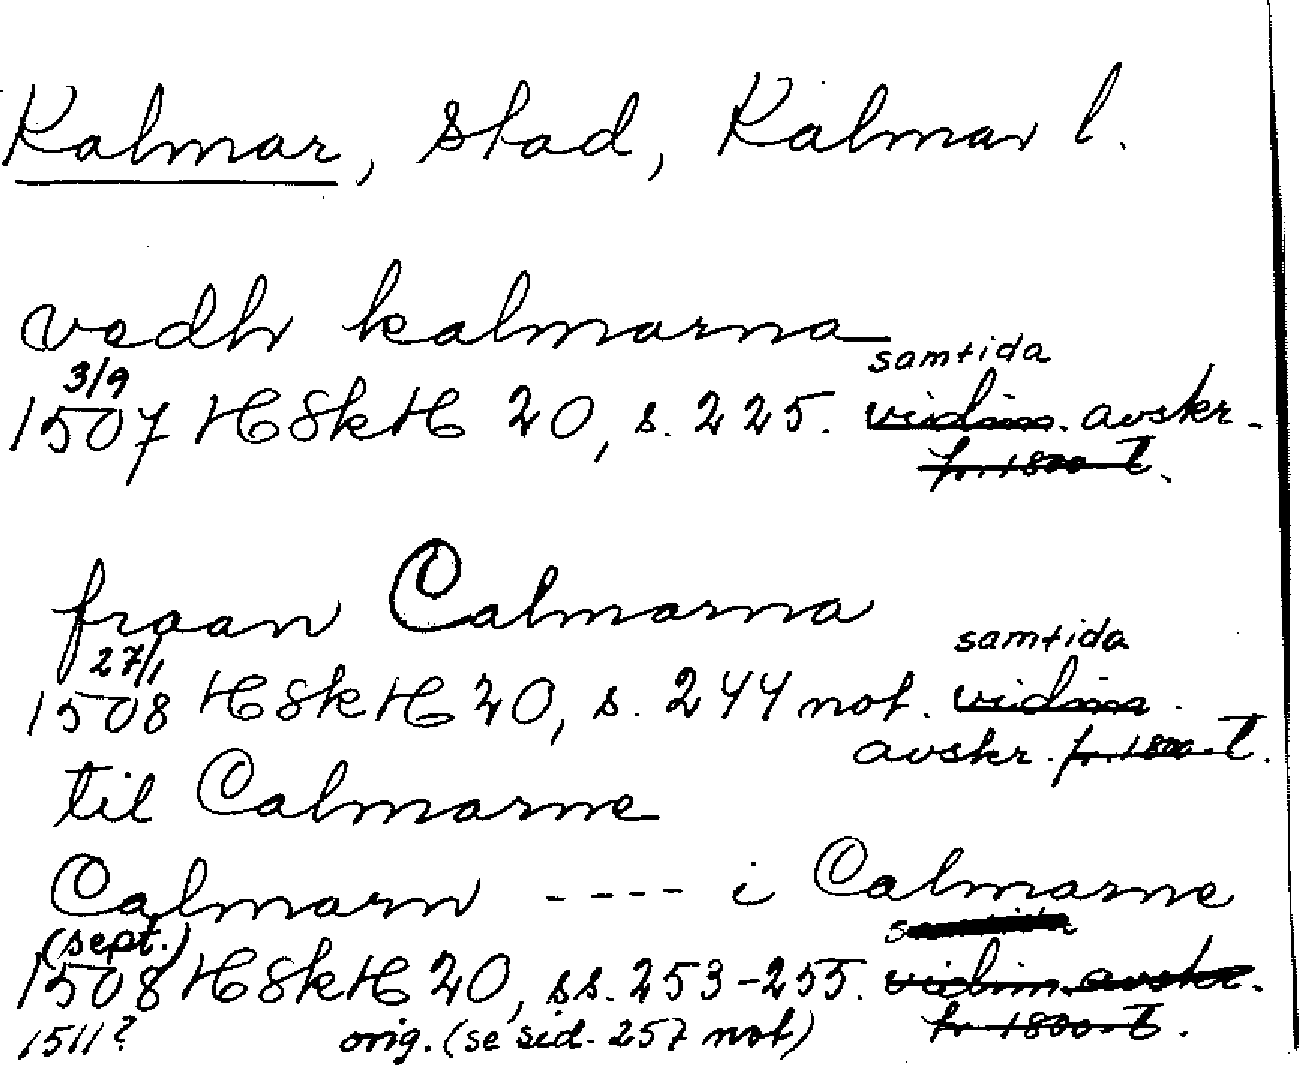 Kalmar, stad, Kalmar l.
vedh kalmarna
3/9 samtida
1507 HSkH 20, s. 225. vidim. avskr.
fr. 1800-t.
fraan Calmarna
27/1 samtida
1508 HSkH 20, s. 244 not. vidim.
avskr. fr. 1800-t.
til Calmarne
Calmarn ---- i Calmarne
(sept.) samtida
1508 HSkH 20, ss. 253-255. vidim. avskr.
1511? orig. (se sid. 257 not) fr 1800-t.